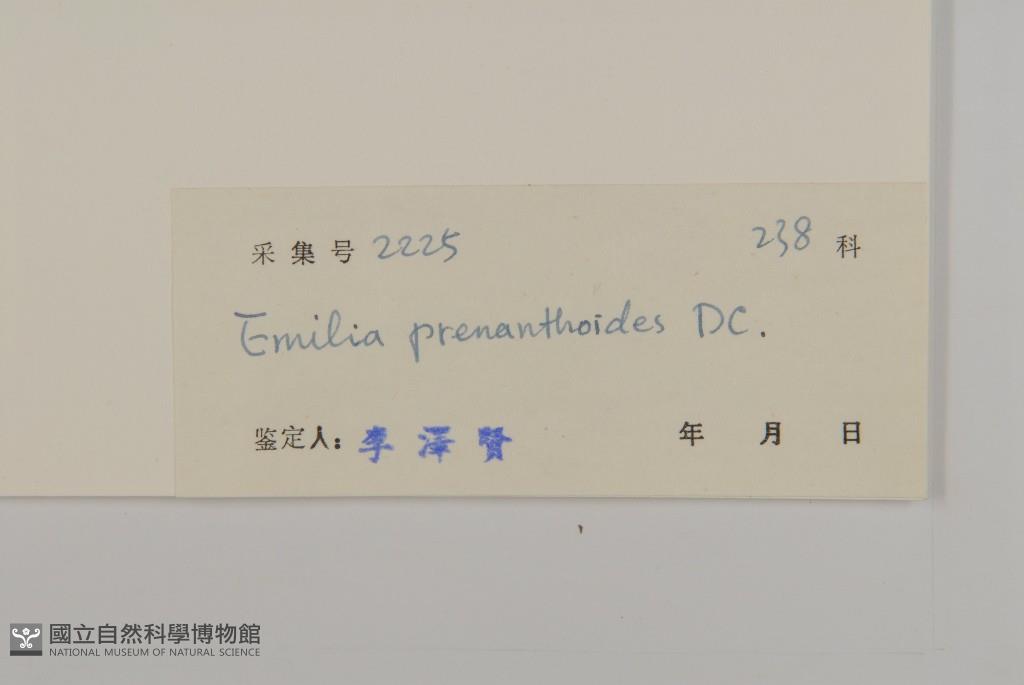 采集号 2225 238 科
Emilia prenanthoides DC.
鉴定人: 李澤賢 年 月 日
國立自然科學博物館
NATIONAL MUSEUM OF NATURAL SCIENCE